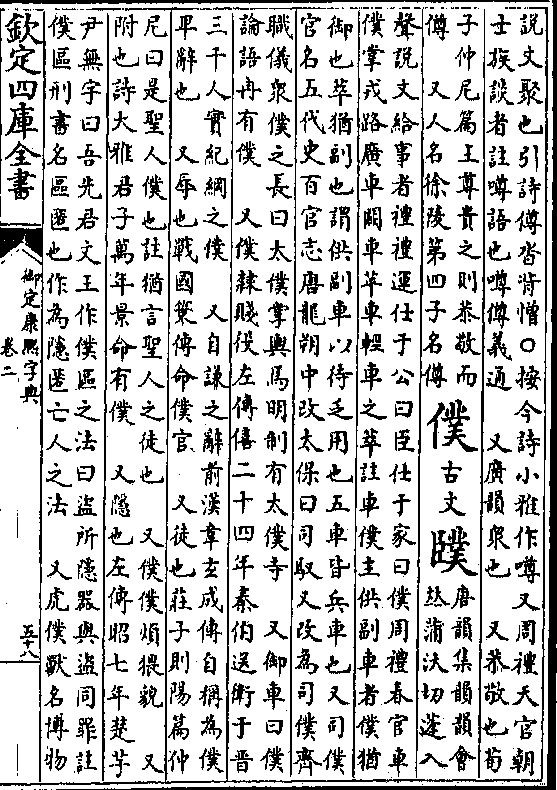 說文聚也引詩僔沓背憎○按今詩小雅作噂又周禮天官朝
士疾談者註噂語也噂僔義通 又廣韻衆也 又恭敬也荀
子仲尼篇主尊貴之則恭敬而
僔 又人名徐陵第四子名僔
僕 古文 䑑
唐韻集韻韻會
𠀤蒲沃切蓬入
聲說文給事者禮禮運仕于公曰臣仕于家曰僕周禮春官車
僕掌戎路廣車闕車苹車輕車之萃註車僕主供副車者僕猶
御也萃猶副也謂供副車以待乏用也五車皆兵車也又司僕
官名五代史百官志唐龍朔中改太保曰司馭又改為司僕齊
職儀衆僕之長曰太僕掌輿馬明制有太僕寺 又御車曰僕
論語冉有僕 又僕隸賤役左傳僖二十四年秦伯送衛于晉
三千人實紀綱之僕 又自謙之辭前漢韋玄成傳自稱為僕
卑辭也 又辱也戰國策傳命僕官 又徒也莊子則陽篇仲
尼曰是聖人僕也註猶言聖人之徒也 又僕僕煩猥貌 又
附也詩大雅君子萬年景命有僕 又隱也左傳昭七年楚芋
尹無宇曰吾先君文王作僕區之法曰盜所隱器與盜同罪註
僕區刑書名區匿也作為隱匿亡人之法 又虎僕獸名博物
欽定四庫全書
御定康熙字典
卷二
五十八